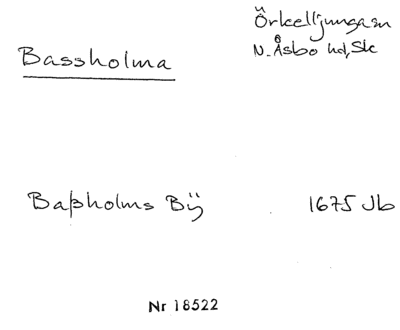 Örkelljunga sn
Bassholma
N. Åsbo hd, Sk
Baßholms Bÿ 1675 Jb
Nr 18522